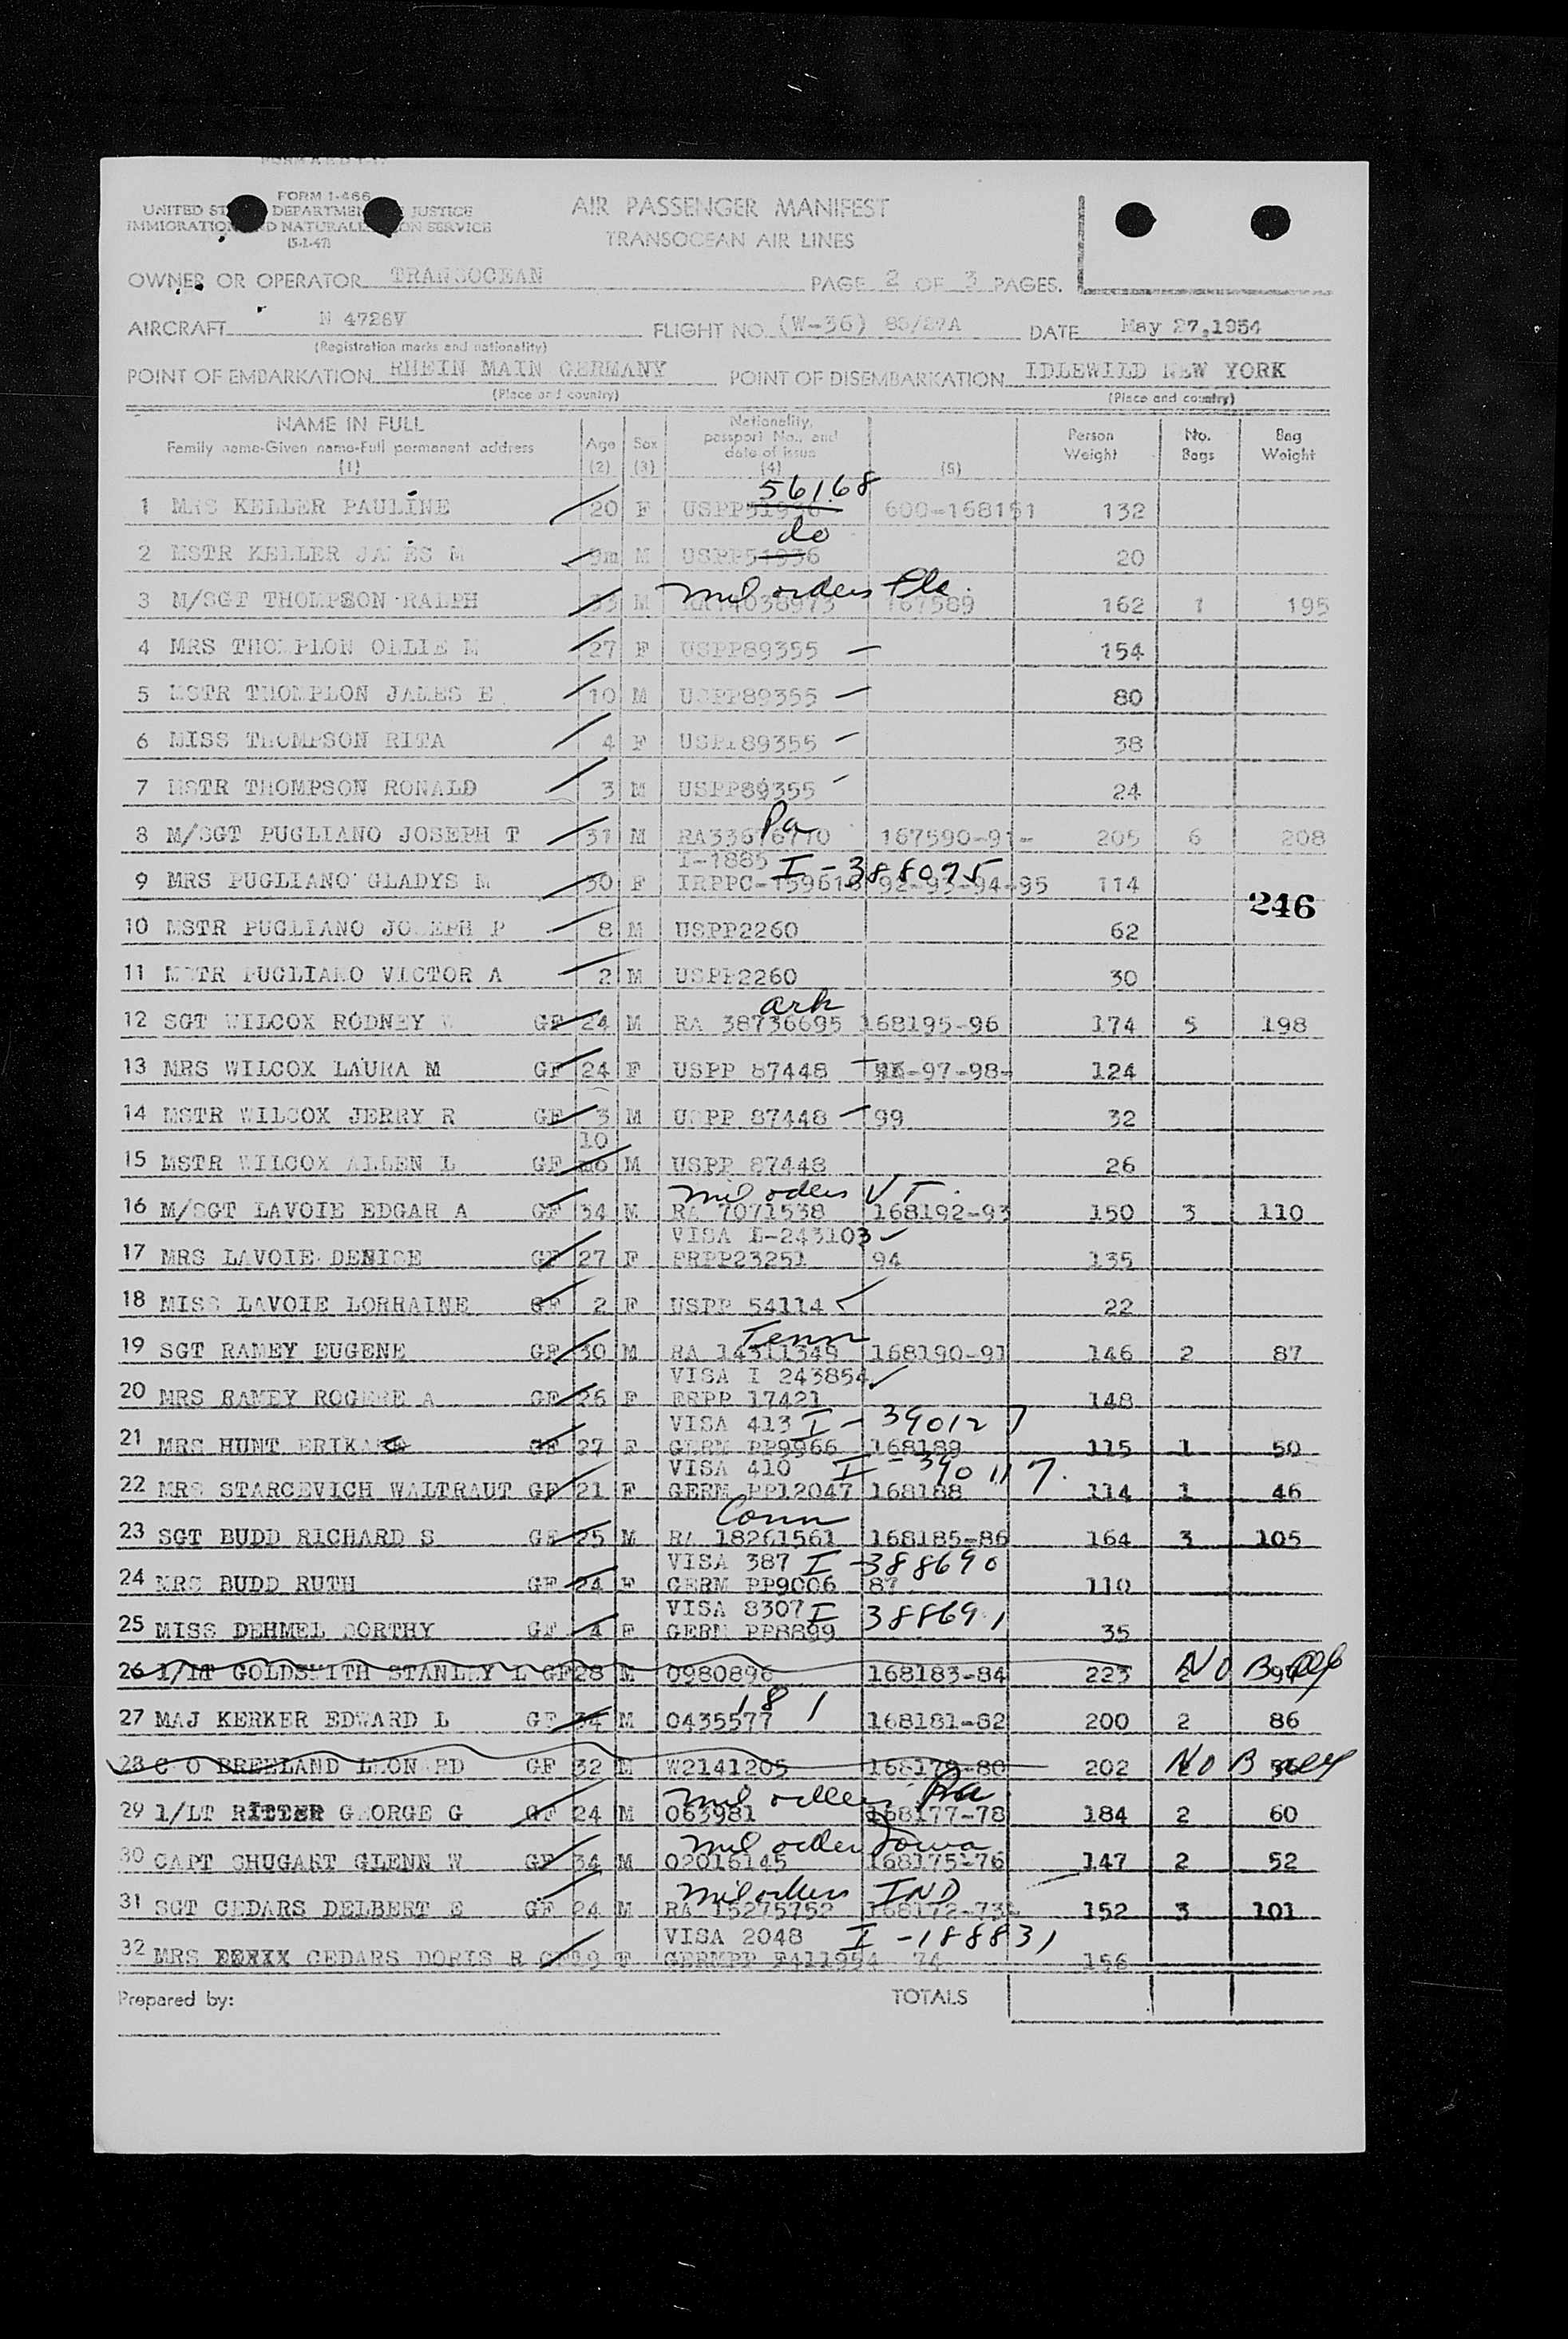 FORM I-466
UNITED ST DEPARTMEN JUSTICE
IMMIGRATION ND NATURALI ON SERVICE
(5-1-47)
AIR PASSENGER MANIFEST
TRANSOCEAN AIR LINES
OWNER OR OPERATOR TRANSOCEAN PAGE 2 OF 3 PAGES.
AIRCRAFT N 4726V FLIGHT NO. (W-36) 85/27A DATE May 27,1954
(Registration marks and nationality)
POINT OF EMBARKATION RHEIN MAIN GERMANY POINT OF DISEMBARKATION IDLEWILD NEW YORK
(Place and country) (Place and country)
NAME IN FULL
Family name-Given name-Full permanent address
(1)
Age (2) Sex (3) Nationality, passport No., and date of issue (4) (5) Person Weight No. Bags Bag Weight
56168
1 MRS KELLER PAULINE 20 F USPP51936 600-168151 132
do
2 MSTR KELLER JAMES M 9m M USPP51936 20
mil orders Fla.
3 M/SGT THOMPSON RALPH 33 M RA14038973 167589 162 1 195
4 MRS THOMPLON OLLIE M 27 F USPP89355 154
5 MSTR THOMPLON JAMES E 10 M USPP89355 80
6 MISS THOMPSON RITA 4 F USPP89355 38
7 MSTR THOMPSON RONALD 3 M USPP89355 24
Pa
8 M/SGT PUGLIANO JOSEPH T 31 M RA33676770 167590-91- 205 6 208
I-1885 I-388075
9 MRS PUGLIANO GLADYS M 30 F IRPPC-159618 92-93-94-95 114
246
10 MSTR PUGLIANO JOSEPH P 8 M USPP2260 62
11 MSTR PUGLIANO VICTOR A 2 M USPP2260 30
Ark
12 SGT WILCOX RODNEY W GF 24 M RA 38736695 168195-96 174 5 198
13 MRS WILCOX LAURA M GF 24 F USPP 87448 -97-98- 124
14 MSTR WILCOX JERRY R GF 3 M USPP 87448 99 32
10
15 MSTR WILCOX ALLEN L GF mo M USPP 87448 26
mil orders VT.
16 M/SGT LAVOIE EDGAR A GF 34 M RA 7071538 168192-93 150 3 110
VISA I-243103
17 MRS LAVOIE DENISE GF 27 F FRPP23251 94 135
18 MISS LAVOIE LORRAINE GF 2 F USPP 54114 22
Tenn
19 SGT RAMEY EUGENE GF 30 M RA 14311349 168190-91 146 2 87
VISA I 243854
20 MRS RAMEY ROGERE A GF 26 F FRPP 17421 148
VISA 413 I-390127
21 MRS HUNT ERIKA GF 27 F GERM PP9966 168189 115 1 50
VISA 410 I-390117.
22 MRS STARCEVICH WALTRAUT GF 21 F GERM PP12047 168188 114 1 46
Conn
23 SGT BUDD RICHARD S GF 25 M RA 18261561 168185-86 164 3 105
VISA 387 I-388690
24 MRS BUDD RUTH GF 24 F GERM PP9006 87 110
VISA 8307 I 388691
25 MISS DEHMEL DORTHY GF 4 F GERM PP8899 35
26 1/LT GOLDSMITH STANLEY L GF 28 M 0980896 168183-84 223 2 No B
181
27 MAJ KERKER EDWARD L GF 34 M 0435577 168181-82 200 2 86
28 C O BREELAND LEONARD GF 32 M W2141205 168179-80 202 No B
mil orders Pa
29 1/LT RITTER GEORGE G GF 24 M 063981 168177-78 184 2 60
mil order Iowa
30 CAPT SHUGART GLENN W GF 34 M 02016145 168175-76 147 2 52
mil orders IND
31 SGT CEDARS DELBERT E GF 24 M RA 15275752 168172-73- 152 3 101
VISA 2048 I-188831
32 MRS CEDARS DORIS R GF 19 F GERMPP F411954 74 156
Prepared by: TOTALS